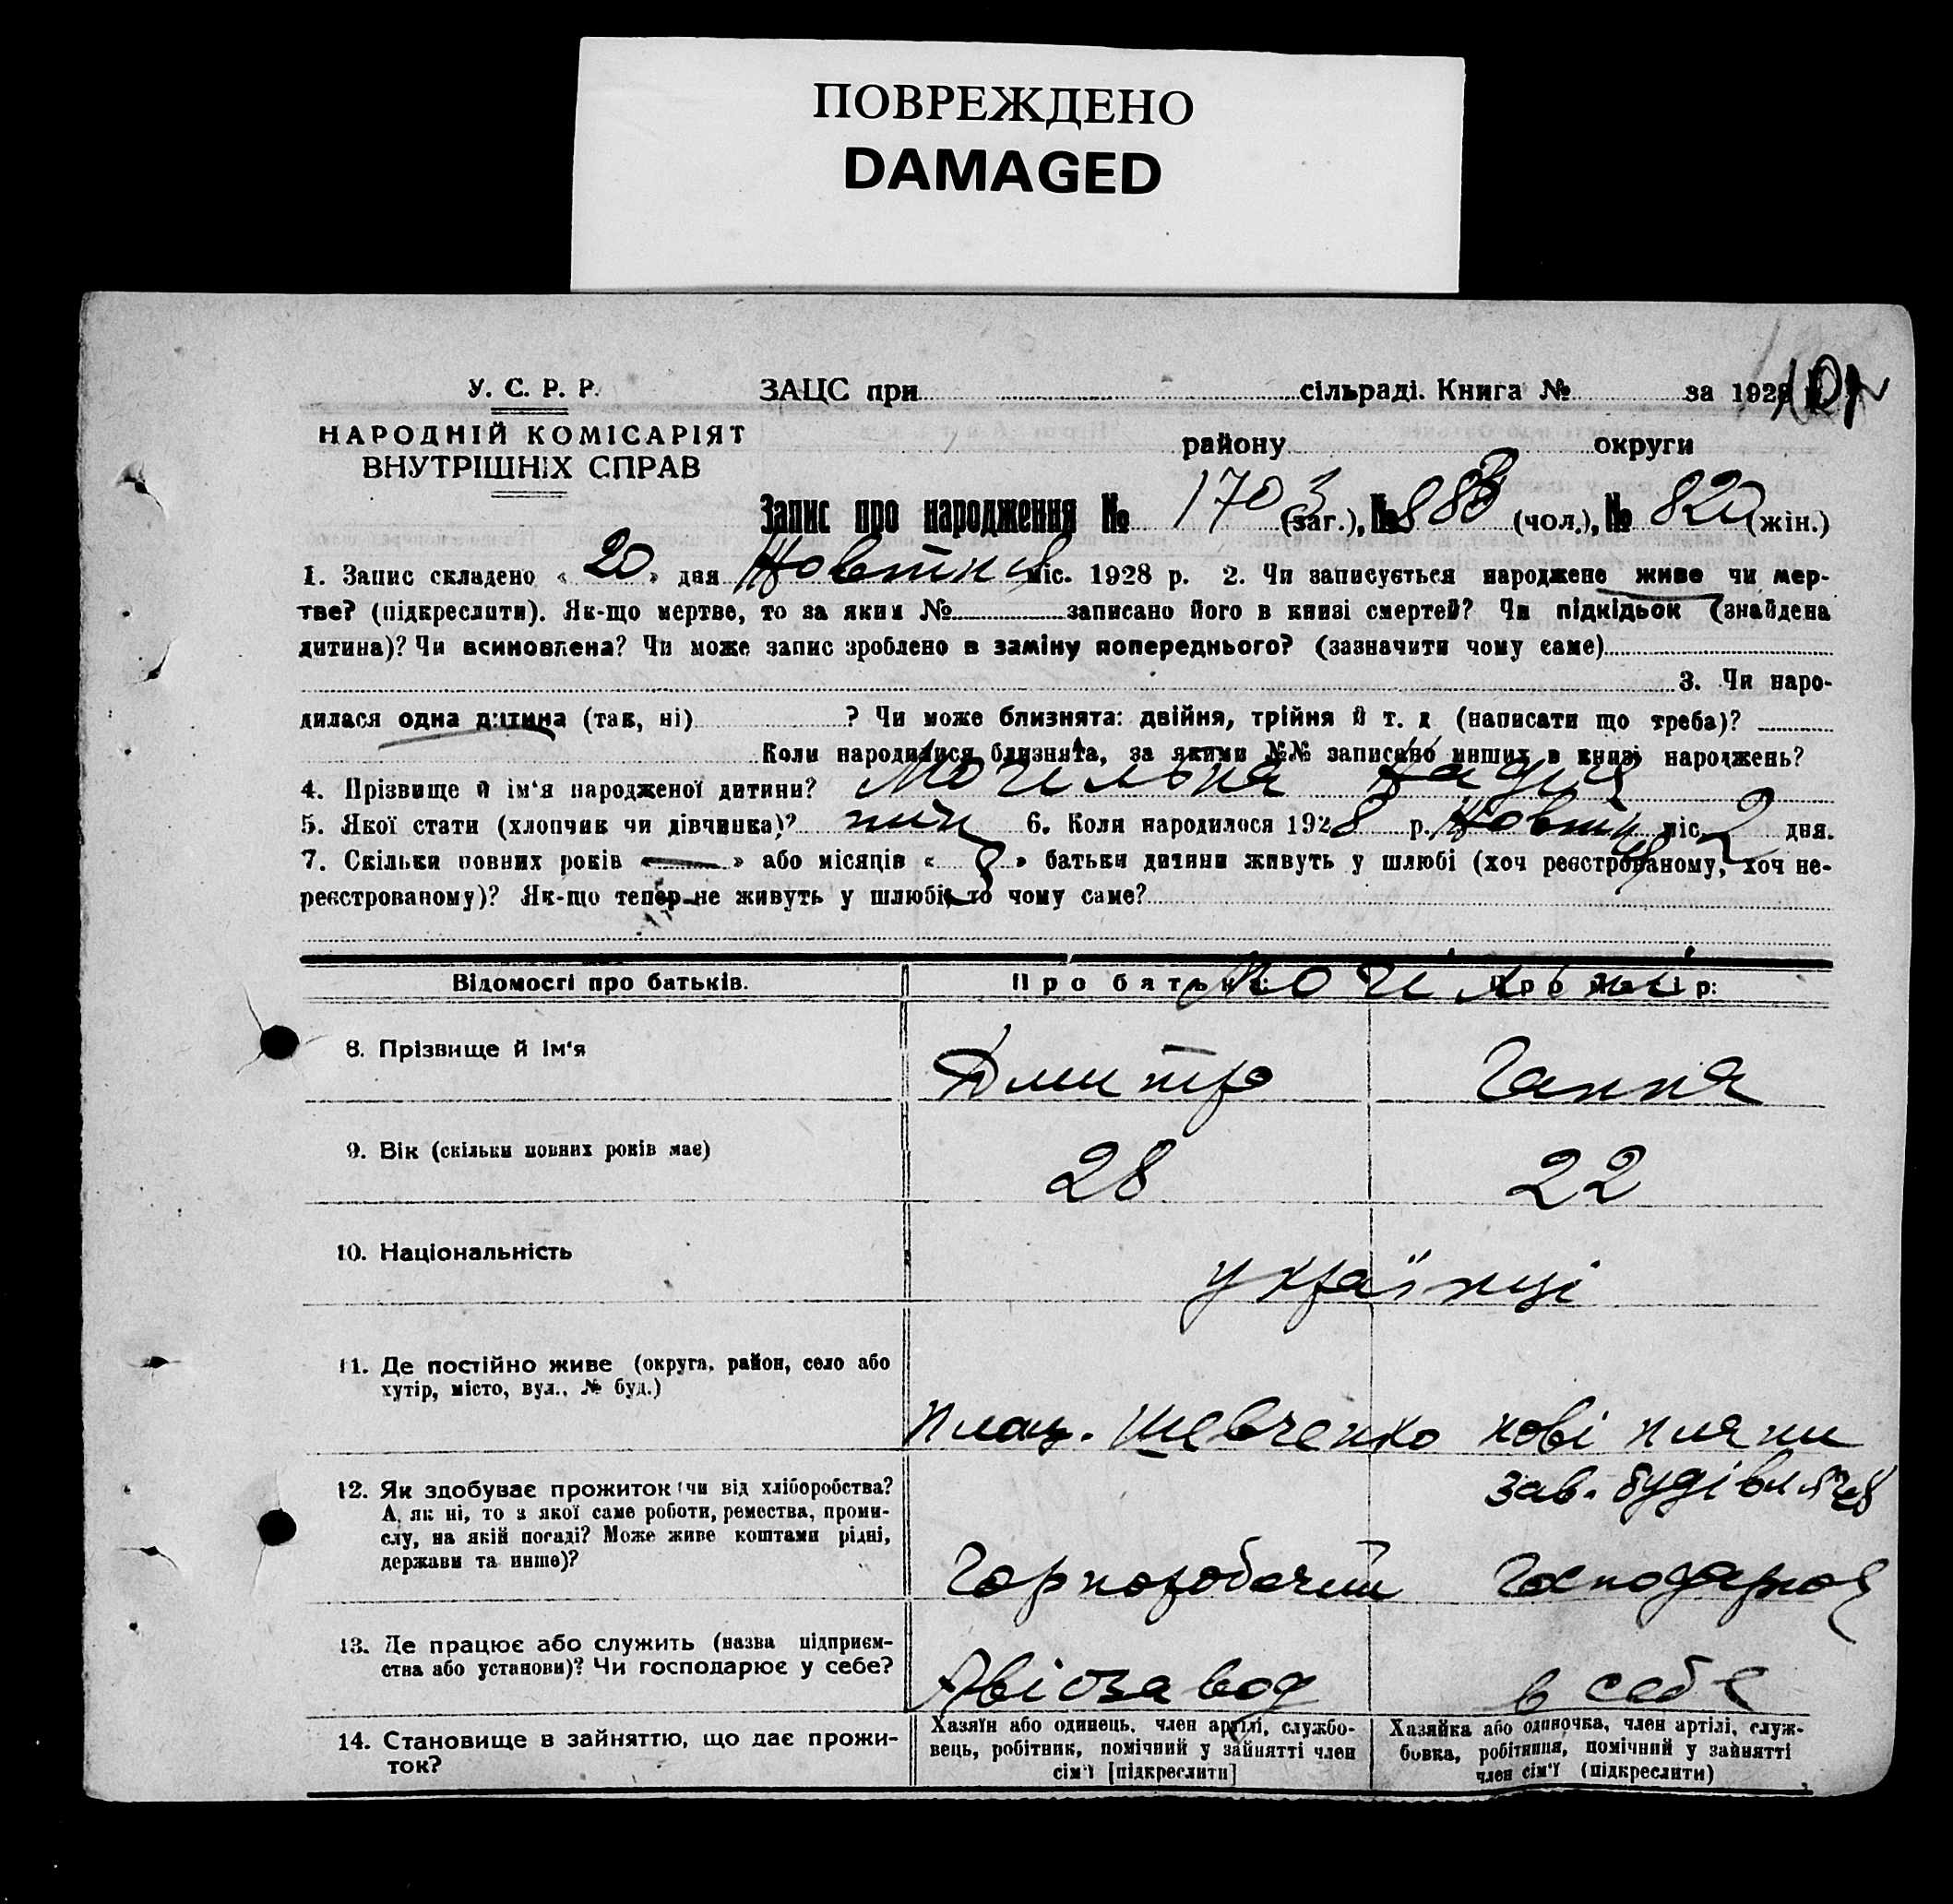 ПОВРЕЖДЕНО
DAMAGED
У. С. Р. Р.
НАРОДНІЙ КОМІСАРІЯТ
ВНУТРІШНІХ СПРАВ
ЗАЦС при сільраді. Книга № за 1928
району округи
Запис про народження № 1703 (заг.), № 883 (чол.), № 820 (жін.)
1. Запис складено « 20 » дня Жовтня міс. 1928 р. 2. Чи записується народжене живе чи мер-
тве? (підкреслити). Як-що мертве, то за яким № записано його в книзі смертей? Чи підкідьок (знайдена
дитина)? Чи всиновлена? Чи може запис зроблено в заміну попереднього? (зазначити чому саме)
3. Чи наро-
дилася одна дитина (так, ні) ? Чи може близнята: двійня, трійня й т. д (написати що треба)?
Коли народилися близнята, за якими №№ записано инших в книзі народжень?
4. Прізвище й ім'я народженої дитини? Могильна Надія
5. Якої стати (хлопчик чи дівчинка)? 6. Коли народилося 1928 р. Жовтня міс. 2 дня.
7. Скільки повних років « — » або місяців « 8 » батьки дитини живуть у шлюбі (хоч реєстрованому, хоч не-
реєстрованому)? Як-що тепер не живуть у шлюбі, то чому саме?
Відомості про батьків. Про батька: Про матір:
Могильні
8. Прізвище й ім'я Дмитро Ганна
9. Вік (скільки повних років має) 28 22
10. Національність українці
11. Де постійно живе (округа, район, село або
хутір, місто, вул., № буд.)
площ. Шевченко нові пляни
зав. будівля
12. Як здобуває прожиток (чи від хліборобства?
А як ні, то з якої саме роботи, ремества, проми-
слу, на якій посаді? Може живе коштами рідні,
держави та инше)?
Чорноробочий Господарює
13. Де працює або служить (назва підприєм-
ства або установи)? Чи господарює у себе?
Авіозавод в себе
14. Становище в зайняттю, що дає прожи-
ток?
Хазяїн або одинець, член артілі, службо-
вець, робітник, помічний у зайнятті член
сім'ї [підкреслити]
Хазяйка або одиночка, член артілі, служ-
бовка, робітниця, помічний у зайнятті
член сім'ї (підкреслити)